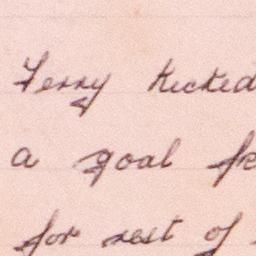 Terry kicked
a goal
for rest of